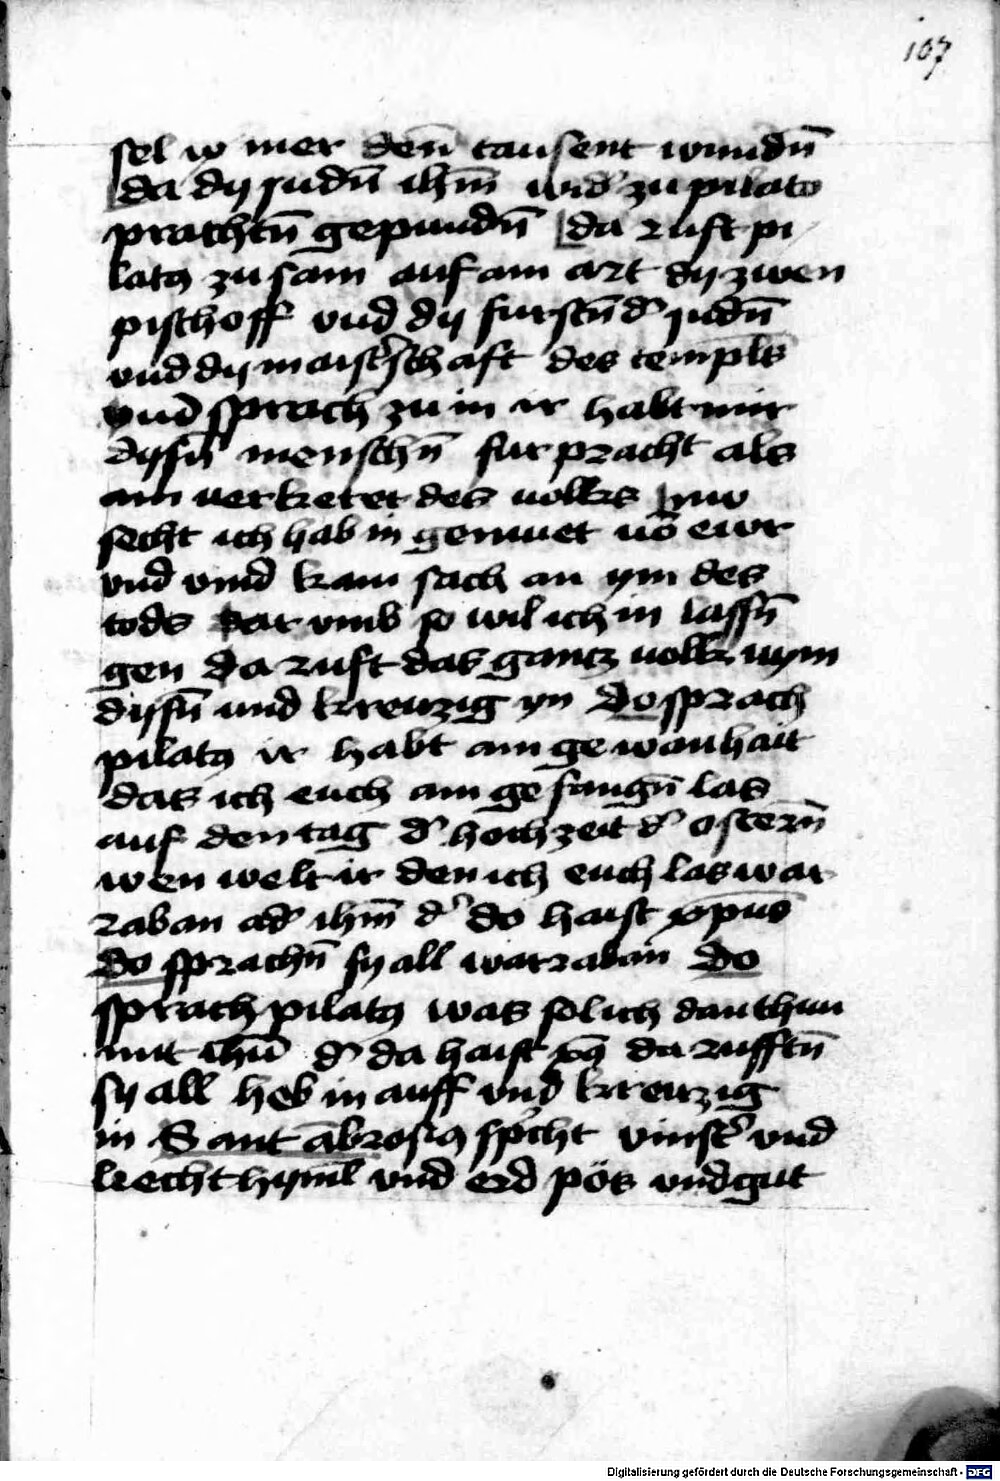 107
sel w mer den̄ tausent wundn̄
da dy judn̄ ihm̄ wid' zu pilato
prachtn̄ gepundn̄ da ruft pi
latꝯ zu sam auf ain art dy zwen
pischoff vnd dy furstn̄ d' judn̄
vnd dy maist'schaft des templs
vnd sprach zu in ir habt mir
dysn̄ menschn̄ fur pracht als
ain verkerer des volks nw
secht ich hab in gemuet vō ewr
vnd vind kain sach an ym des
tods dar vmb so wil ich in lassn̄
gen da ruft das gantz volk nym
dysn̄ und kreuzig yn do sprach
pilatꝯ ir habt ain gewonhait
das ich euch ain gefangn̄ las
auf den tag d' hochzeit d' ostern̄
wen welt ir den ich euch las war
raban ad' ihm̄ d' do haist xp̄us
do sprachn̄ sy all warraban do
sprach pilatꝯ was sol ich dan thun
mit ihū d' da haist xp̄ꝯ da rufftn̄
sy all heb in auff vnd kreuzig
in Sant ābrosiꝯ sp'cht vinst' vnd
liecht hyml vnd erd pös vnd gut
Digitalisierung gefördert durch die Deutsche Forschungsgemeinschaft - DFG